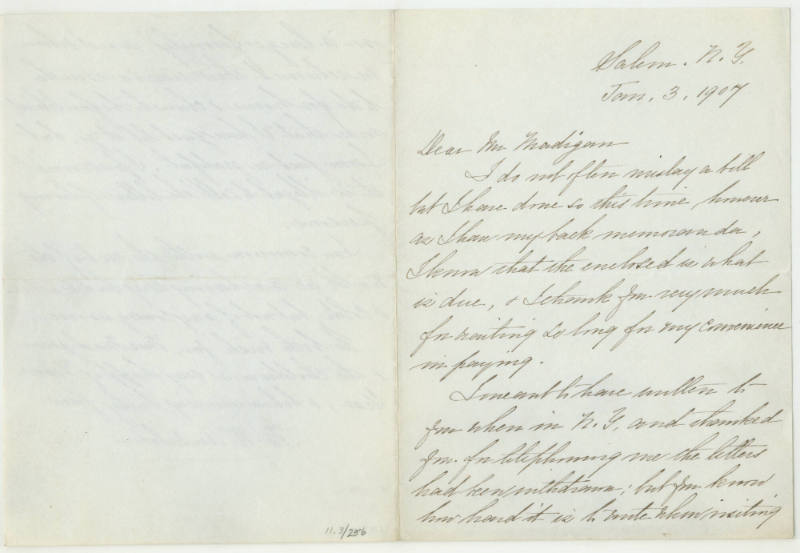 Salem. N. Y.
Jan. 3. 1907
Dear Mr Madigan
I do not often mislay a bill
but I have done so this time however
as I have my back memoranda,
I know that the enclosed is what
is due, & I thank you very much
for waiting so long for my convenience
in paying.
I meant to have written to
you when in N. Y. and thanked
you for telephoning me the letters
had been withdrawn; but you know
how hard it is to write when visiting
11.3/256